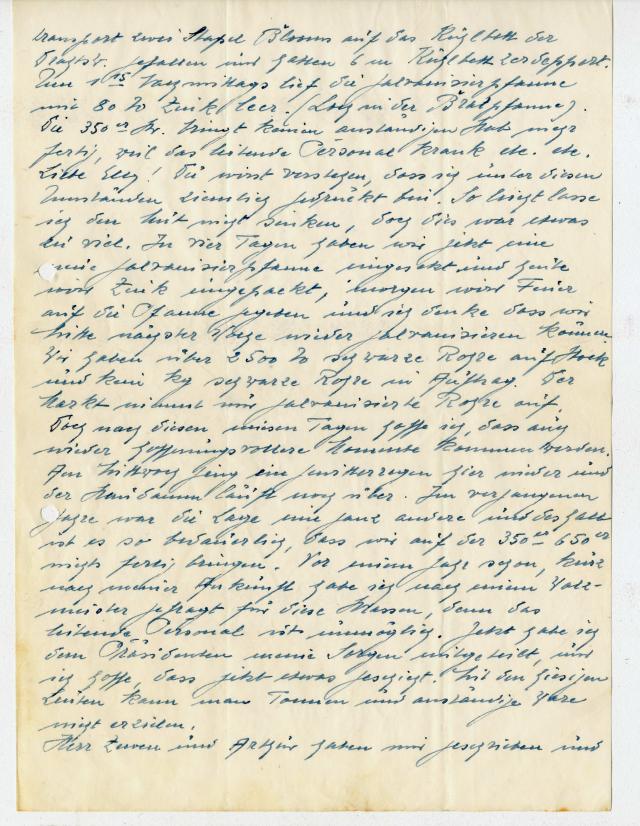 transport zwei Stapel Blooms auf das Kühlbett der
gefallen und hatten 6 m Kühlbett zerdeppert.
Um 1 15 Nachmittags lief die Galvanisierpfanne
mit 80 To Zink leer. (Loch in der Bratpfanne).
Die 350 er Str. bringt keinen anständigen Stab mehr
fertig, weil das leitende Personal krank etc. etc.
Liebe Elly! Du wirst verstehen, dass ich unter diesen
Umständen ziemlich gedrückt bin. So leicht lasse
ich den Mut nicht sinken, doch dies war etwas
zu viel. In vier Tagen haben wir jetzt eine
neue Galvanisierpfanne eingesetzt und heute
wird Zink eingepackt, morgen wird Feuer
auf die Pfanne gegeben und ich denke dass wir
Mitte nächster Woche wieder galvanisieren können.
Wir haben über 2500 To schwarze Rohre auf Stock
und kein kg schwarze Rohre in Auftrag. Der
Markt nimmt nur galvanisierte Rohre auf.
Doch nach diesen miesen Tagen hoffe ich, dass auch
wieder hoffnungsvollere Momente kommen werden.
Am Mittwoch ging ein Gewitterregen hier nieder und
der Staudamm läuft noch über. Im vergangenen
Jahre war die Lage eine ganz andere und deshalb
ist es so bedauerlich, dass wir auf der 350 er & 650 er
nichts fertig bringen. Vor einem Jahr schon, kurz
nach meiner Ankunft habe ich nach einem Walz-
meister gefragt für diese Strassen, denn das
leitende Personal ist unmöglich. Jetzt habe ich
dem Präsidenten meine Sorgen mitgeteilt, und
ich hoffe, dass jetzt etwas geschieht. Mit den hiesigen
Leuten kann man Tonnen und anständige Ware
nicht erzielen.
Herr und Arthur haben mir geschrieben und